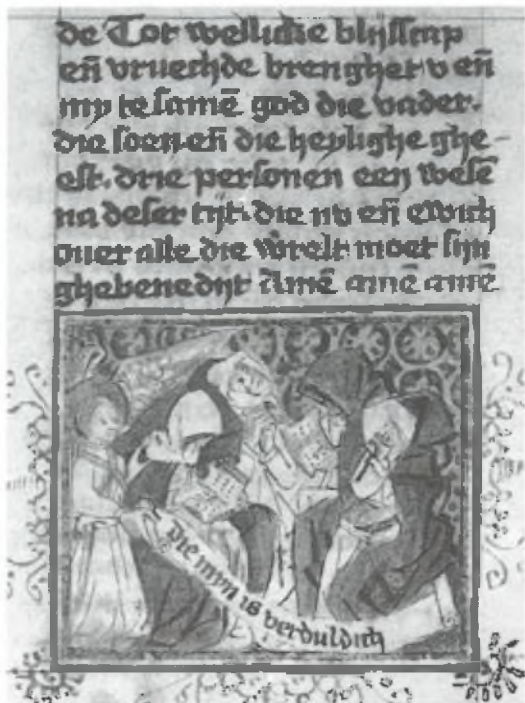 de Tot wellicke blijscap
en̄ vruechde brengher v en̄
my te samē god die vader.
die soen en̄ die heylighe ghe-
est. drie personen een wesē
na deser tijt. die nv en̄ ewich
ouer alle die werelt moet sijn
ghebenedijt Amē amē amē
Die myn is verduldich